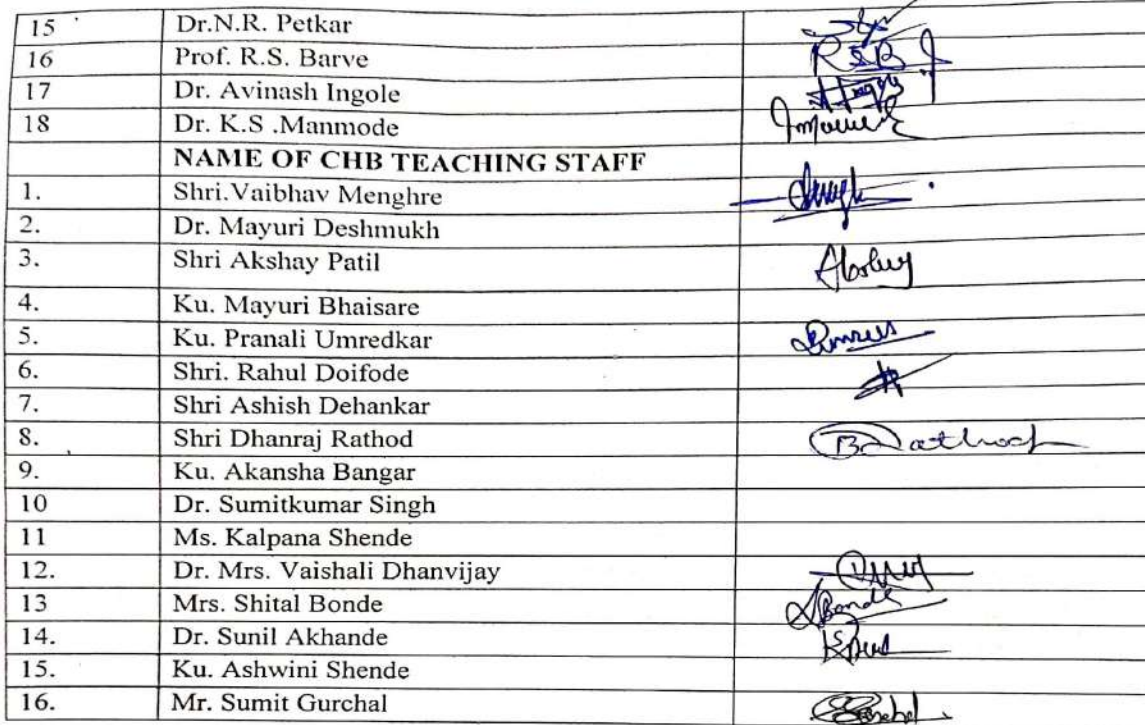 15 Dr.N.R. Petkar
16 Prof. R.S. Barve RSB
17 Dr. Avinash Ingole
18 Dr. K.S .Manmode
NAME OF CHB TEACHING STAFF
1. Shri.Vaibhav Menghre
2. Dr. Mayuri Deshmukh
3. Shri Akshay Patil
4. Ku. Mayuri Bhaisare
5. Ku. Pranali Umredkar
6. Shri. Rahul Doifode
7. Shri Ashish Dehankar
8. Shri Dhanraj Rathod
9. Ku. Akansha Bangar
10 Dr. Sumitkumar Singh
11 Ms. Kalpana Shende
12. Dr. Mrs. Vaishali Dhanvijay
13 Mrs. Shital Bonde SBonde
14. Dr. Sunil Akhande
15. Ku. Ashwini Shende
16. Mr. Sumit Gurchal